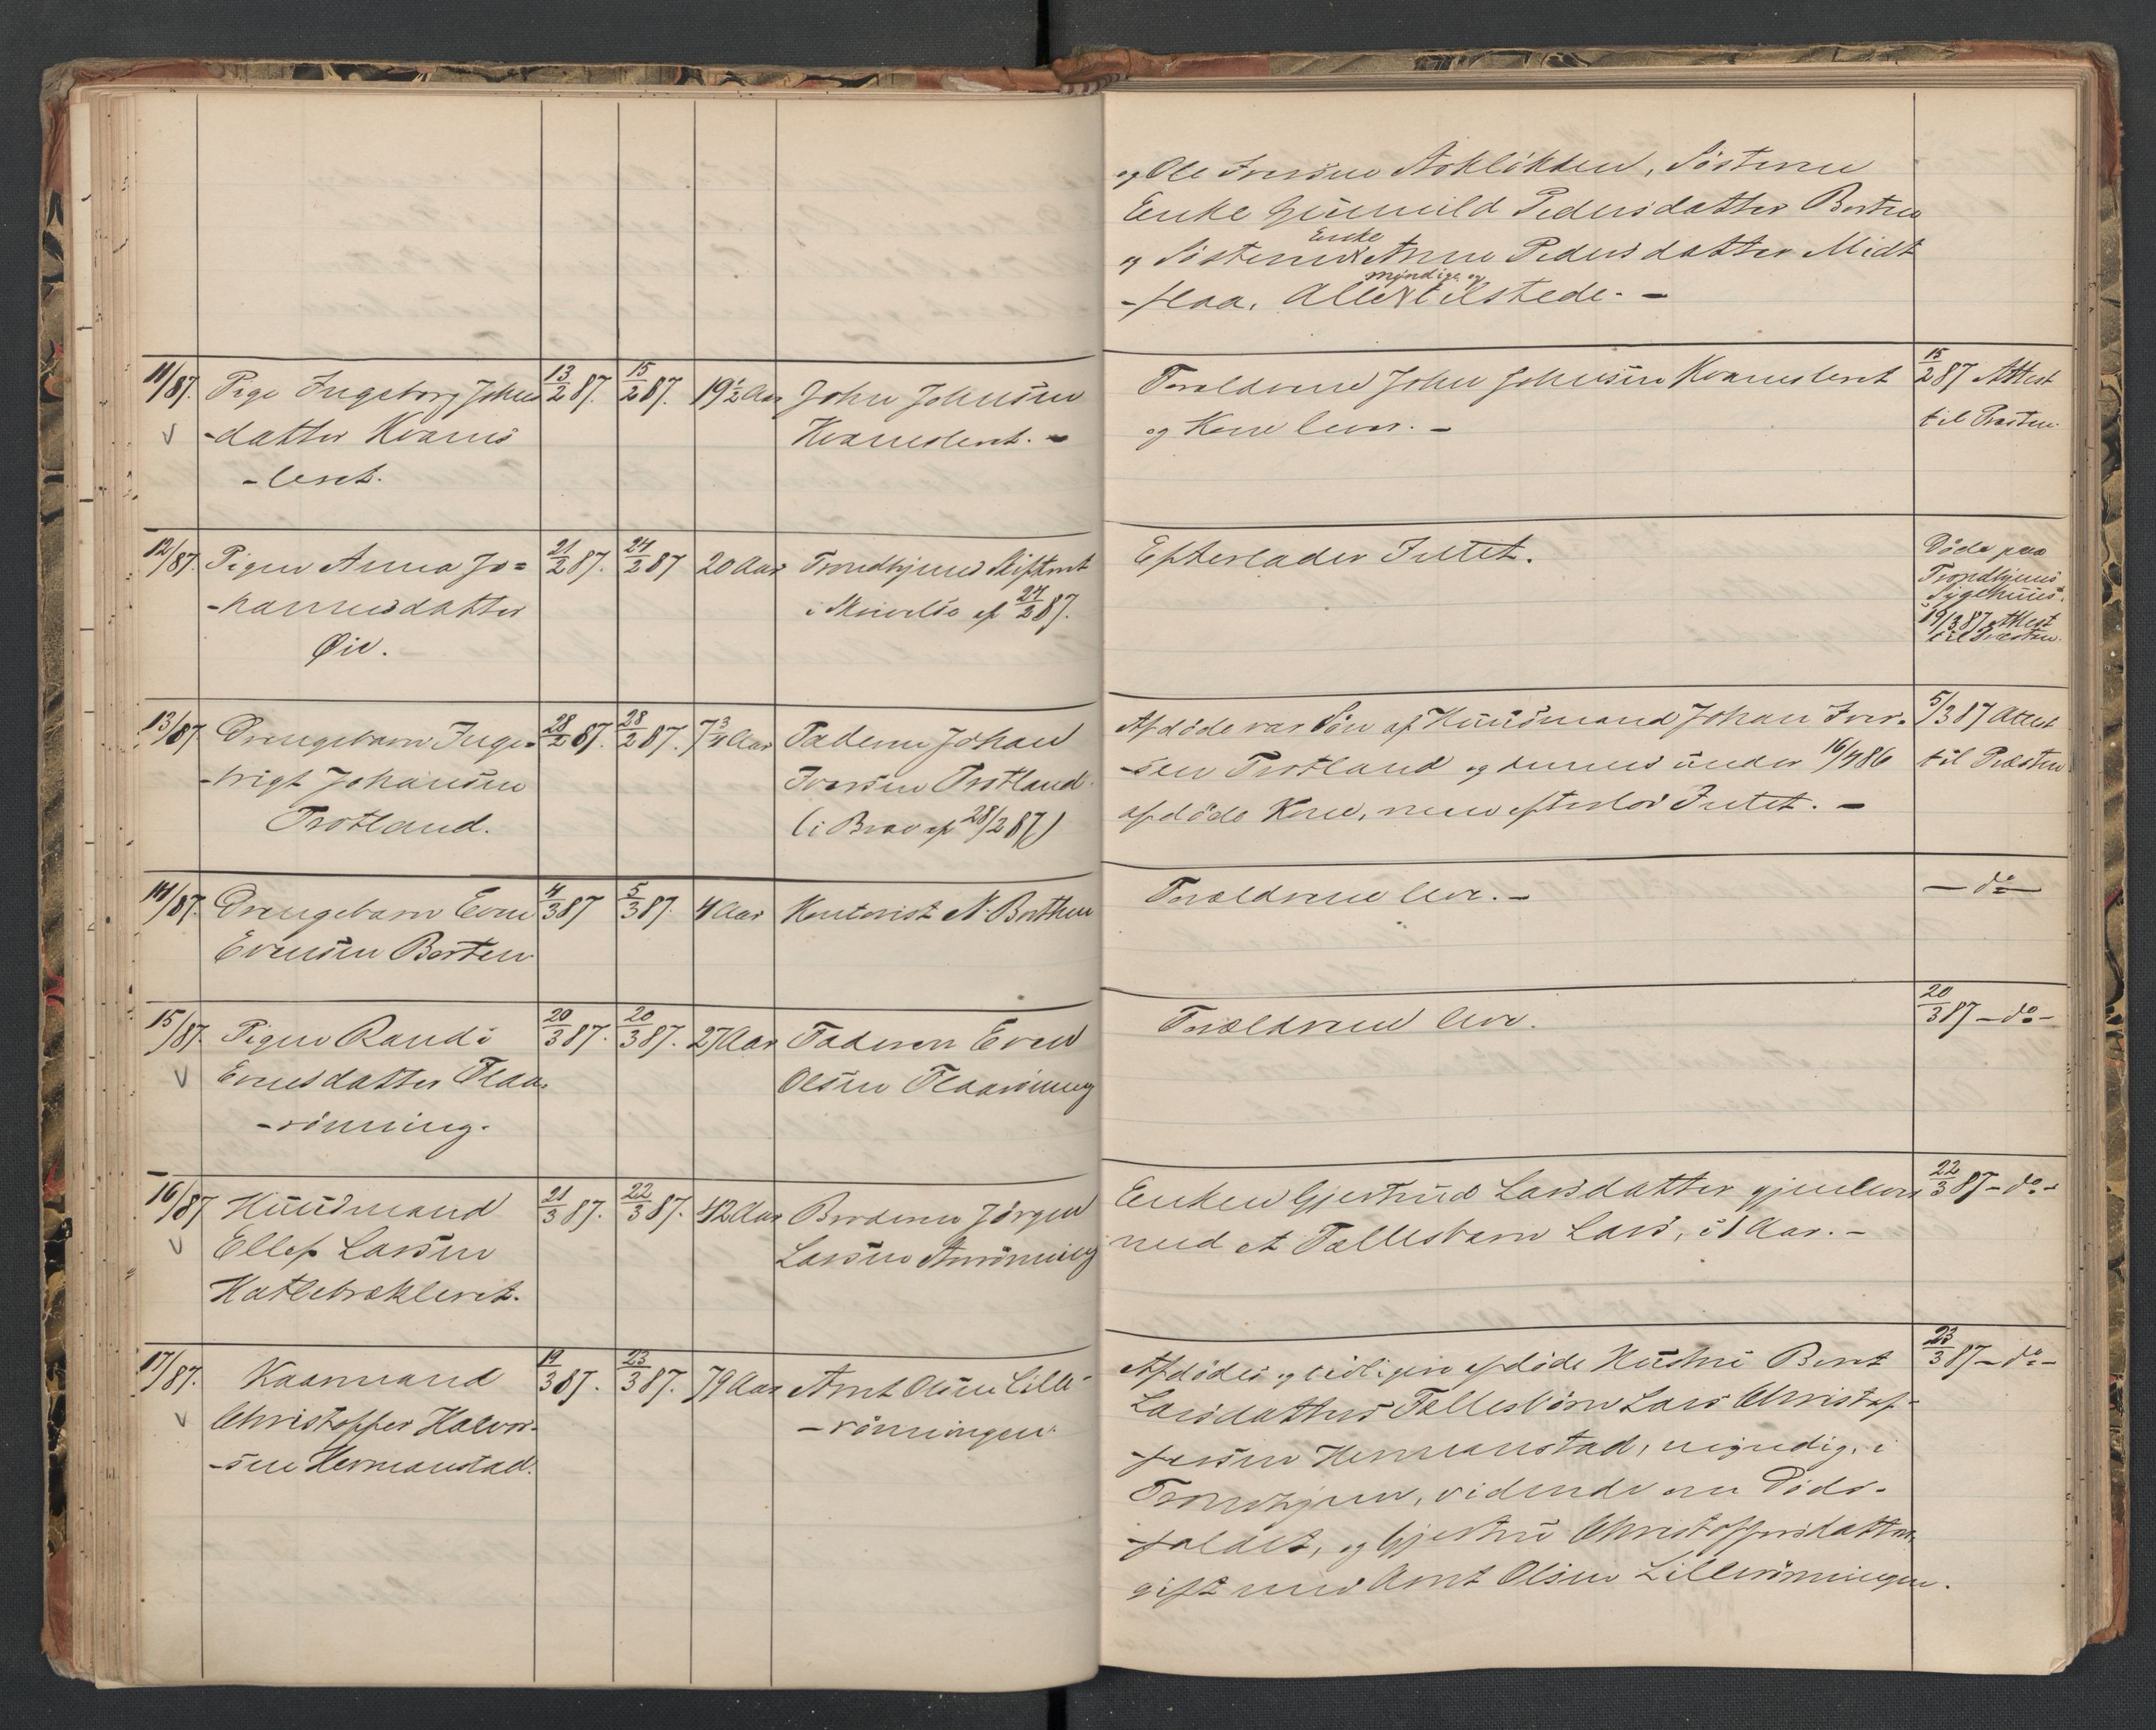 og Ole Iversen Askløkken, Søsteren
Enke Gunnild Pedersdatter Borten
og Søsteren Enke Anne Pedersdatter Midt
-flaa. Alle myndige og tilstede. -
11/87. Pige Ingeborg Johns
-datter Kvams
-lent.
13/2 87. 15/2 87. 19½ Aar
John Johnsen
Kvamslent. -
Forældrene John Johnsen Kvamslent
og Kone lever. -
15/2 87 Attest
til Præsten.
12/87. Pigen Anna Jo=
-hannesdatter
Øie.
21/2 87. 24/2 87 20 Aar
Trondhjems Skifteret
i Skrivelse af 24/2 87.
Efterlader Intet.
Døde paa
Trondhjems
Sygehuus.
19/3 87 Attest
til Præsten.
13/87. Drengebarn Inge-
-brigt Johansen
Trotland.
28/2 87. 28/2 87. 7¾ Aar
Faderen Johan
Iversen Trotland.
(i Brev af 28/2 87)
Afdøde var Søn af Huusmand Johan Iver-
-sen Trotland og dennes under 16/9 86
afdøde Kone, men efterlod Intet. -
5/3 87 Attest
til Præsten
14/87. Drengebarn Even
Evensen Borten
4/3 87 5/3 87. 4 Aar
Kontorist N. Borthen
Forældrene lever. -
- do -
15/87. Pigen Randi
Evensdatter Flaa-
-rønning.
20/3 87. 20/3 87. 27 Aar
Faderen Even
Olsen Flaarønning
Forældrene lever.
20/3 87 - do -
16/87 Huusmand
Ellef Larsen
Katlebrækleret.
21/3 87. 22/3 87. 42 Aar
Broderen Jørgen
Larsen Aunrønning
Enken Gjertrud Larsdatter gjenlever
med et Fællesbarn Lars, i 1 Aar. -
22/3 87 - do -
17/87. Kaarmand
Christopher Halvor-
-sen Hermanstad.
19/3 87. 23/3 87. 79 Aar
Arnt Olsen Lille-
-rønningen.
Afdødes og tidligere afdøde Hustru Berit
Larsdatters Fællesbørn Lars Christof-
-fersen Hermanstad, myndig, i
Trondhjem, vidende om Døds-
-faldet, og Gjertru Christoffersdatter
gift med Arnt Olsen Lillerønningen.
23/3 87 - do -